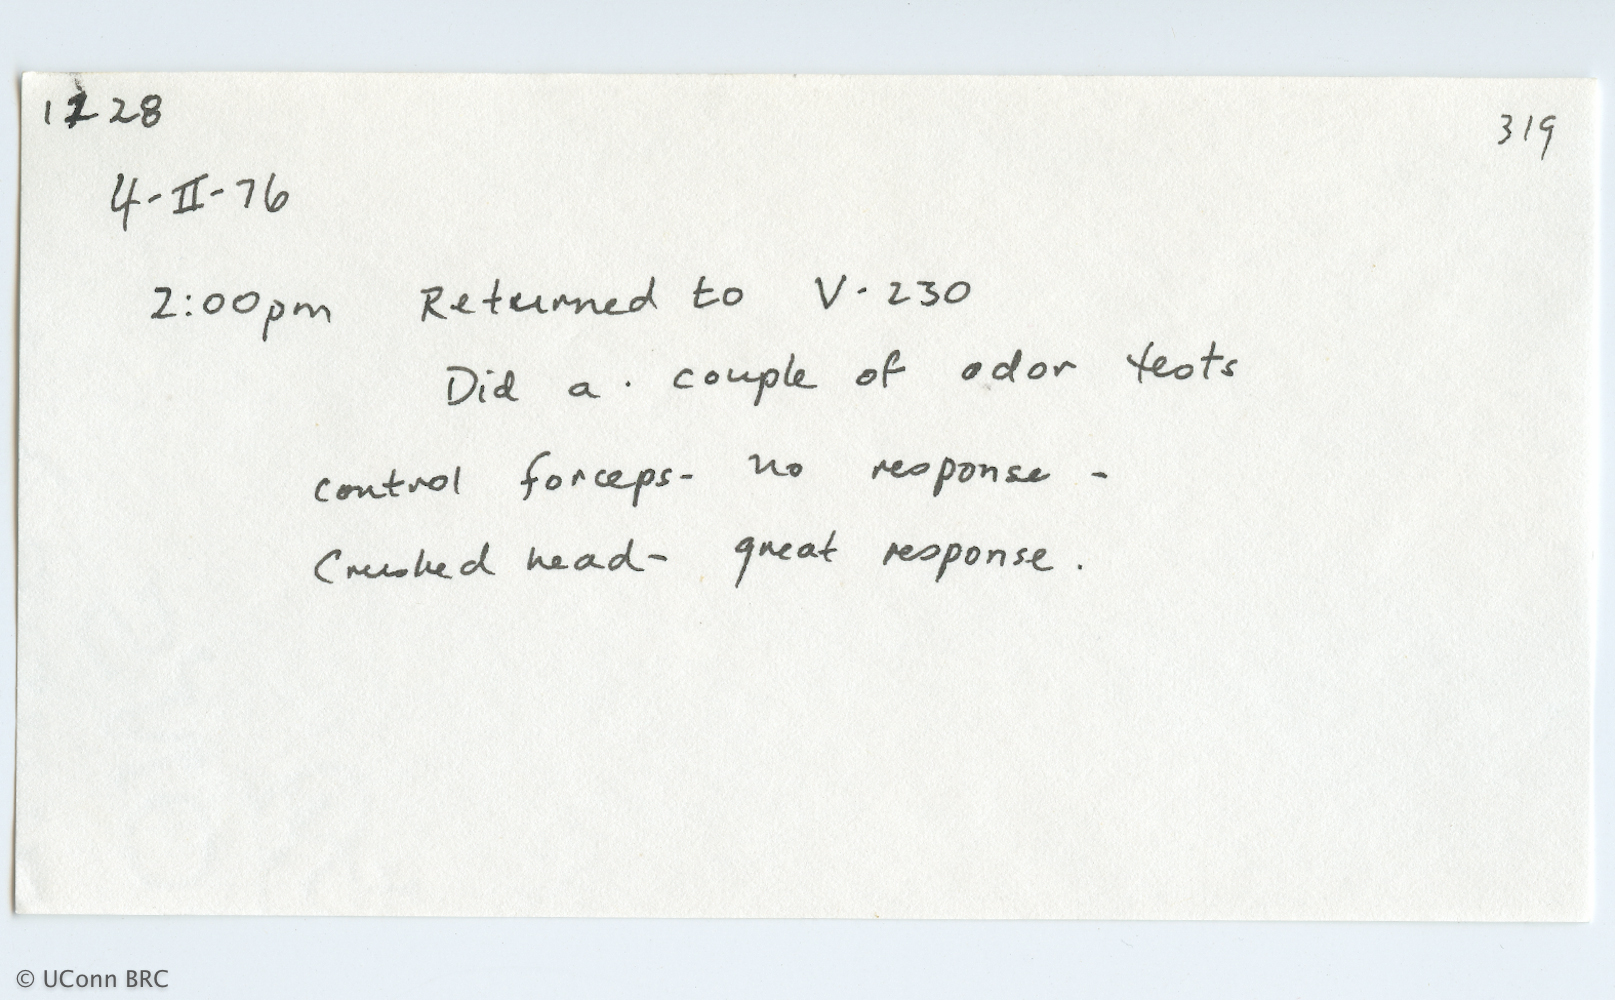 1128
319
4-II-76
2:00pm Returned to V-230
Did a couple of odor tests
control forceps- no response -
Crushed head- great response.
© UConn BRC